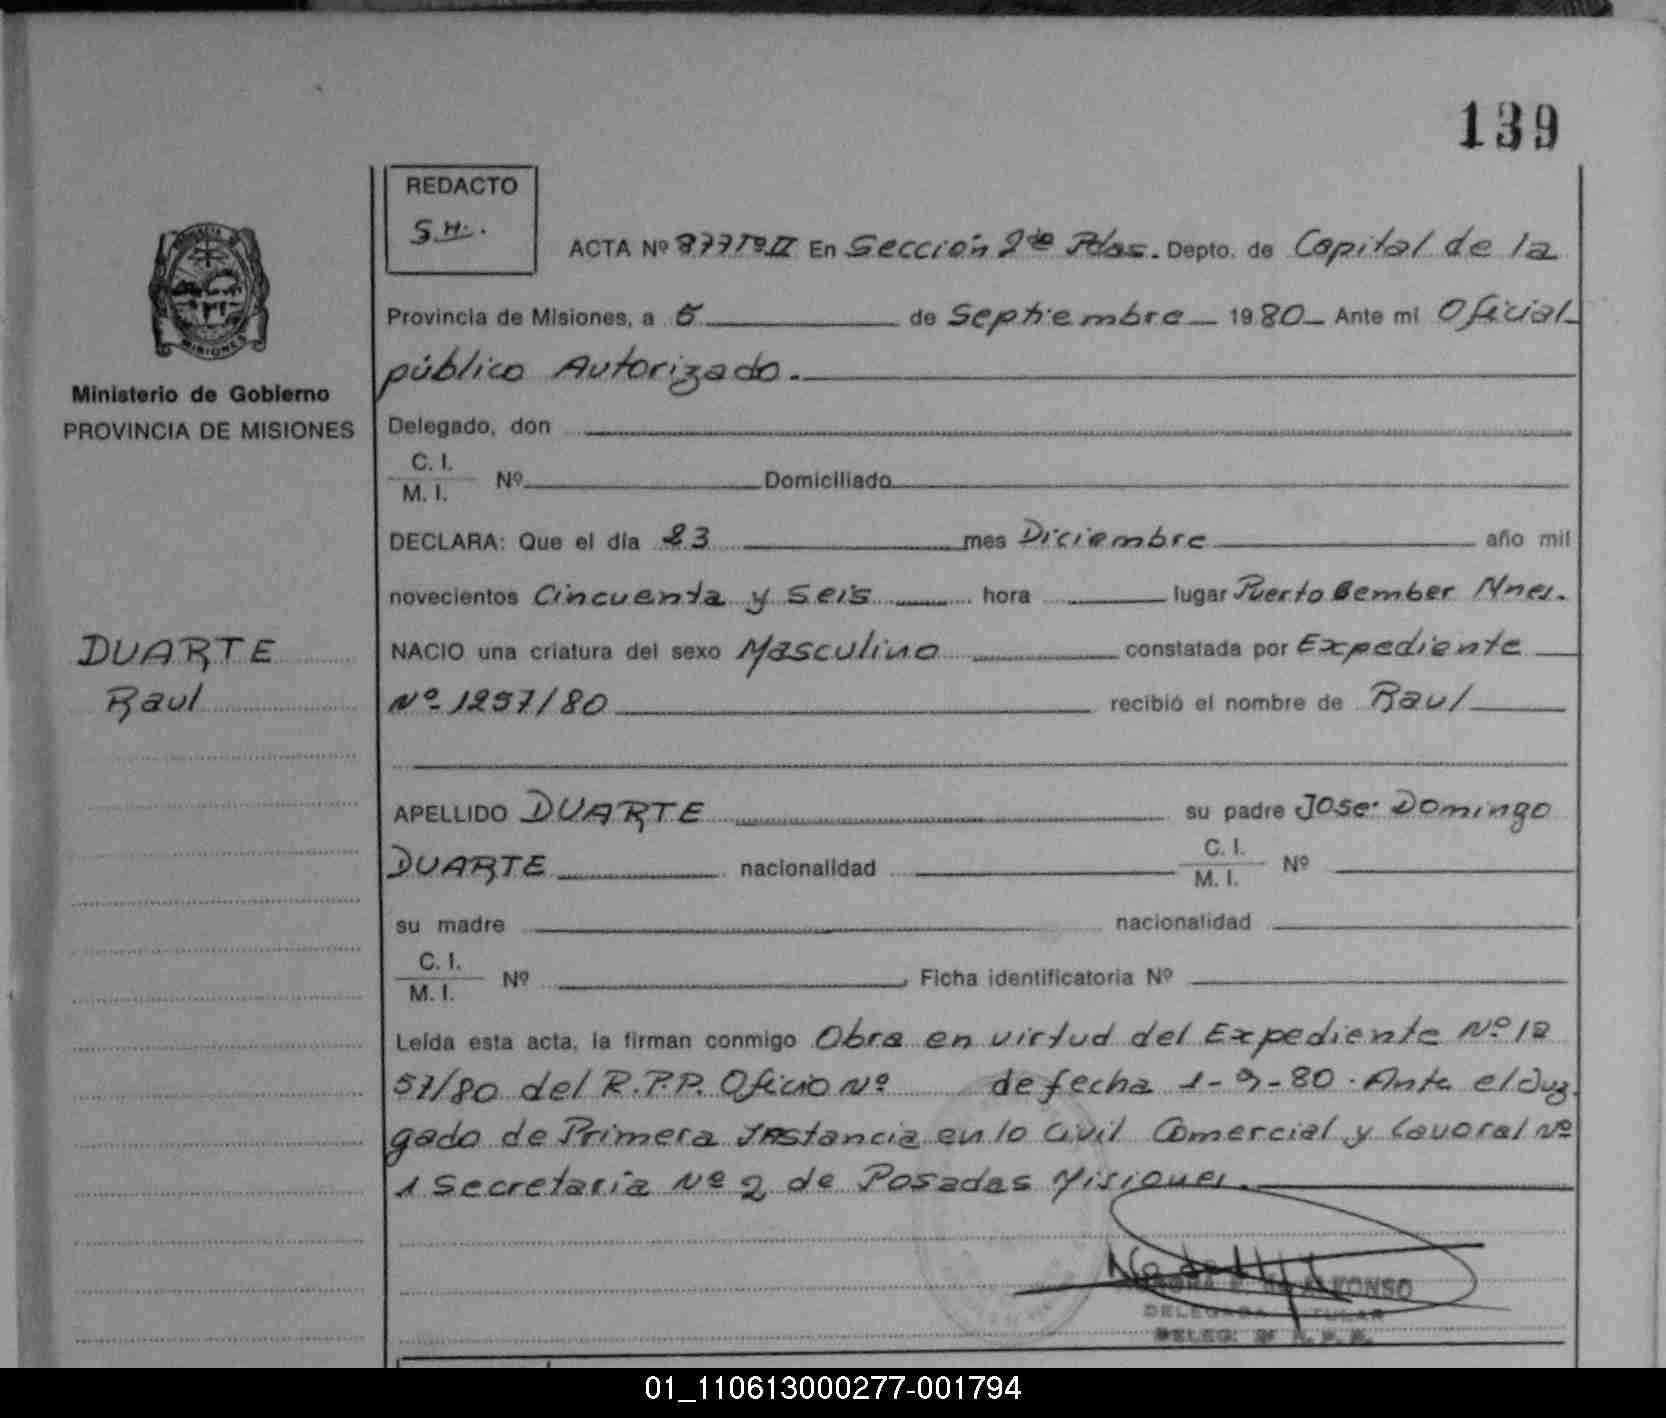 139
REDACTO
S.H.
ACTA Nº 877 Tº II En Sección 2da Pdas. Depto. de Capital de la
Provincia de Misiones, a 5 de Septiembre 1980 Ante mi Oficial
público Autorizado.
MISIONES
Ministerio de Gobierno
PROVINCIA DE MISIONES
Delegado, don
C. I.
M. I. Nº Domiciliado
DECLARA: Que el día 23 mes Diciembre año mil
novecientos Cincuenta y Seis hora lugar Puerto Bember Mnes.
DUARTE
Raul
NACIO una criatura del sexo Masculino constatada por Expediente
Nº 1257/80 recibió el nombre de Raul
APELLIDO DUARTE su padre Jose Domingo
DUARTE nacionalidad C. I.
M. I. Nº
su madre nacionalidad
C. I.
M. I. Nº Ficha identificatoria Nº
Leída esta acta, la firman conmigo Obra en virtud del Expediente Nº 12
57/80 del R.P.P. Oficio Nº de fecha 1-9-80. Ante el Juz
gado de Primera Instancia en lo Civil Comercial y Lavoral Nº
1 Secretaria Nº 2 de Posadas Misiones.
ALFONSO
DELEGADA TITULAR
DELEG. 2ª R. P. P.
01_110613000277-001794